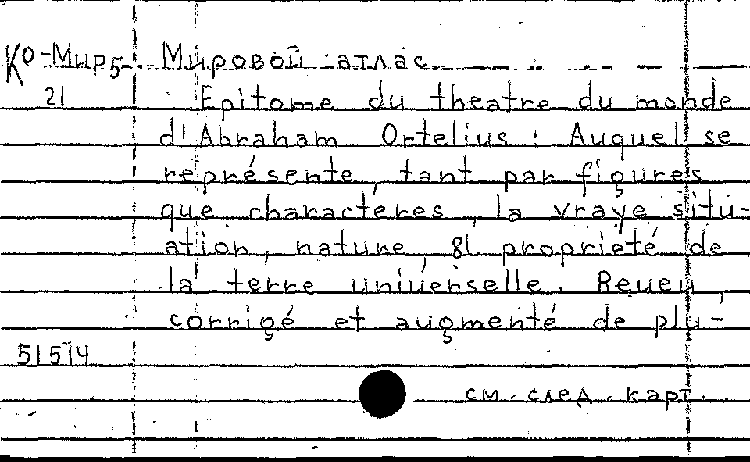 Ко-Мир5 Мировой атлас.
21 Epitome du theatre du monde
d'Abraham Ortelius : Auquel se
représente, tant par figures
que charactères, la vraye situ-
ation, nature, & propriété de
la terre universelle. Reueu,
corrigé et augmenté de plu-
51514
см. след. карт.